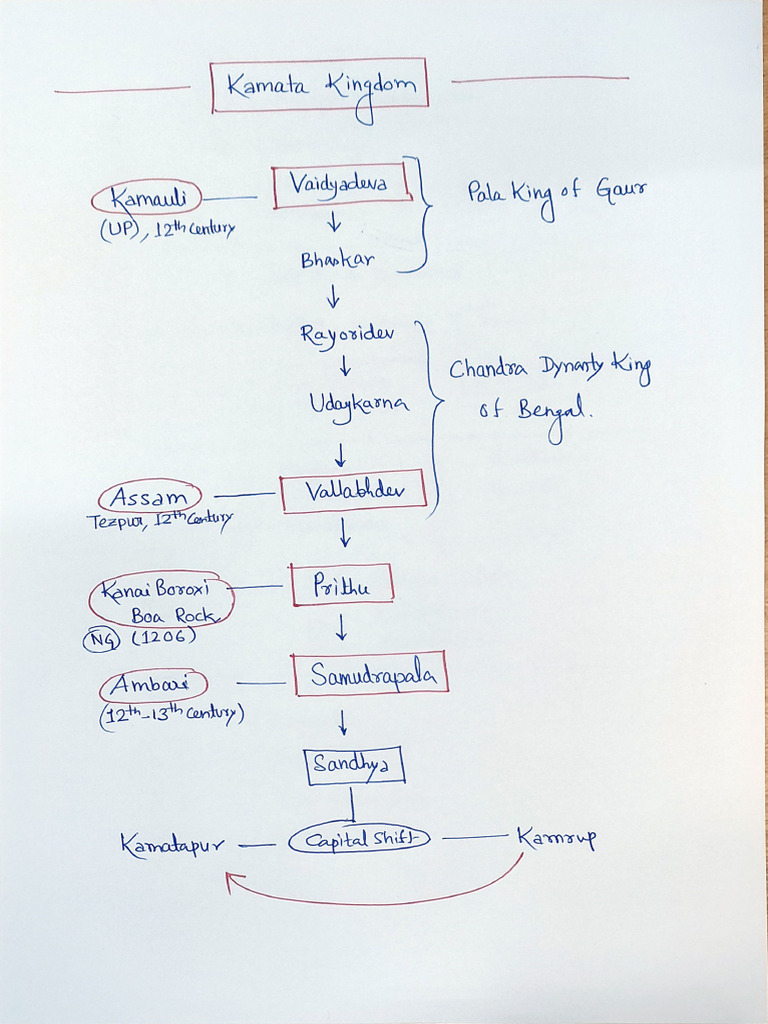 Kamata Kingdom
Kamauli
(UP), 12th Century
Vaidyadeva
Pala King of Gaur
Bhaskar
Rayoridev
Chandra Dynasty King
of Bengal.
Udaykarna
Assam
Tezpur, 12th Century
Vallabhdev
Kanai Boroxi
Boa Rock
NG (1206)
Prithu
Ambari
(12th-13th Century)
Samudrapala
Sandhya
Kamatapur
Capital Shift
Kamrup